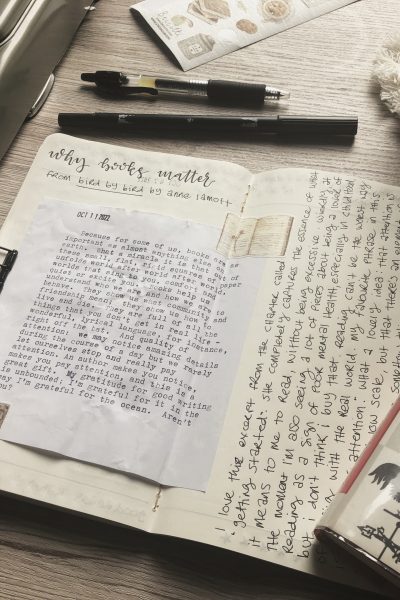 why books matter
FROM bird by bird by anne lamott
OCT 11 2022
Because for some of us, books are as
important as almost anything else on
earth. What a miracle it is that out of
these small, flat, rigid squares of paper
unfolds world after world after world,
worlds that sing to you, comfort and
quiet or excite you. Books help us
understand who we are and how we are to
behave. They show us what community and
friendship mean; they show us how to
live and die. They are full of all the
things that you don't get in real life -
wonderful, lyrical language, for instance,
right off the bat. And quality of
attention: we may notice amazing details
during the course of a day but we rarely
let ourselves stop and really pay
attention. An author makes you notice,
makes you pay attention, and this is a
great gift. My gratitude for good writing
is unbounded; I'm grateful for it in the
way I'm grateful for the ocean. Aren't
I love this excerpt from the chapter called
"getting started". She completely captures the essence of what
it means to me to read without being excessive
The moment I'm also seeing a lot of pieces about being a lover of
Reading as a sign of poor mental health, especially in childhood
but I don't think I buy that. Reading can be the
with the real world. My favourite phrase in this
attention: what a lovely idea that attention is
now scale, but that there's an element